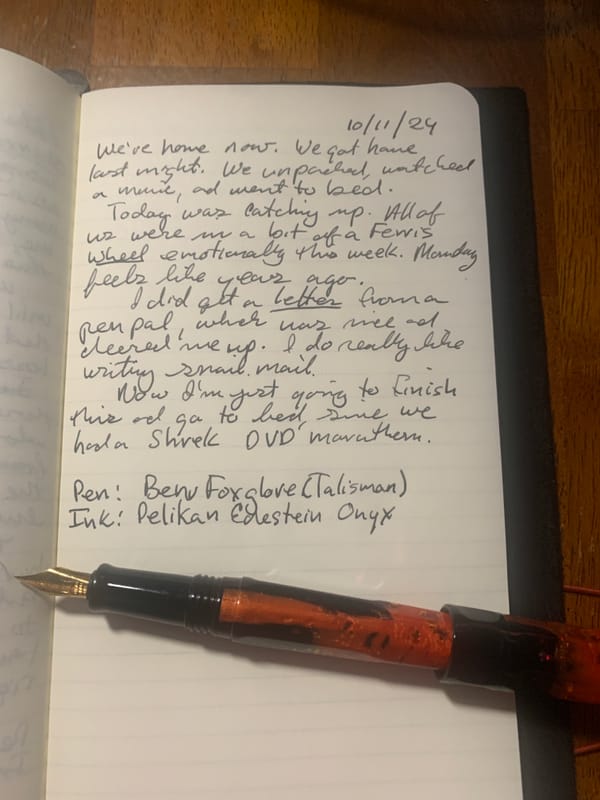 10/11/24
We're home now. We got home
last night. We unpacked, watched
a movie, ad went to bed.
Today was catching up. All of
us were in a bit of a Ferris
wheel emotionally this week. Monday
feels like years ago.
I did get a letter from a
pen pal, which was nice ad
cheered me up. I do really like
writing snail mail.
Now I'm just going to finish
this ad go to bed, since we
had a Shrek DVD marathon.
Pen: Benu Foxglove (Talisman)
Ink: Pelikan Edelstein Onyx